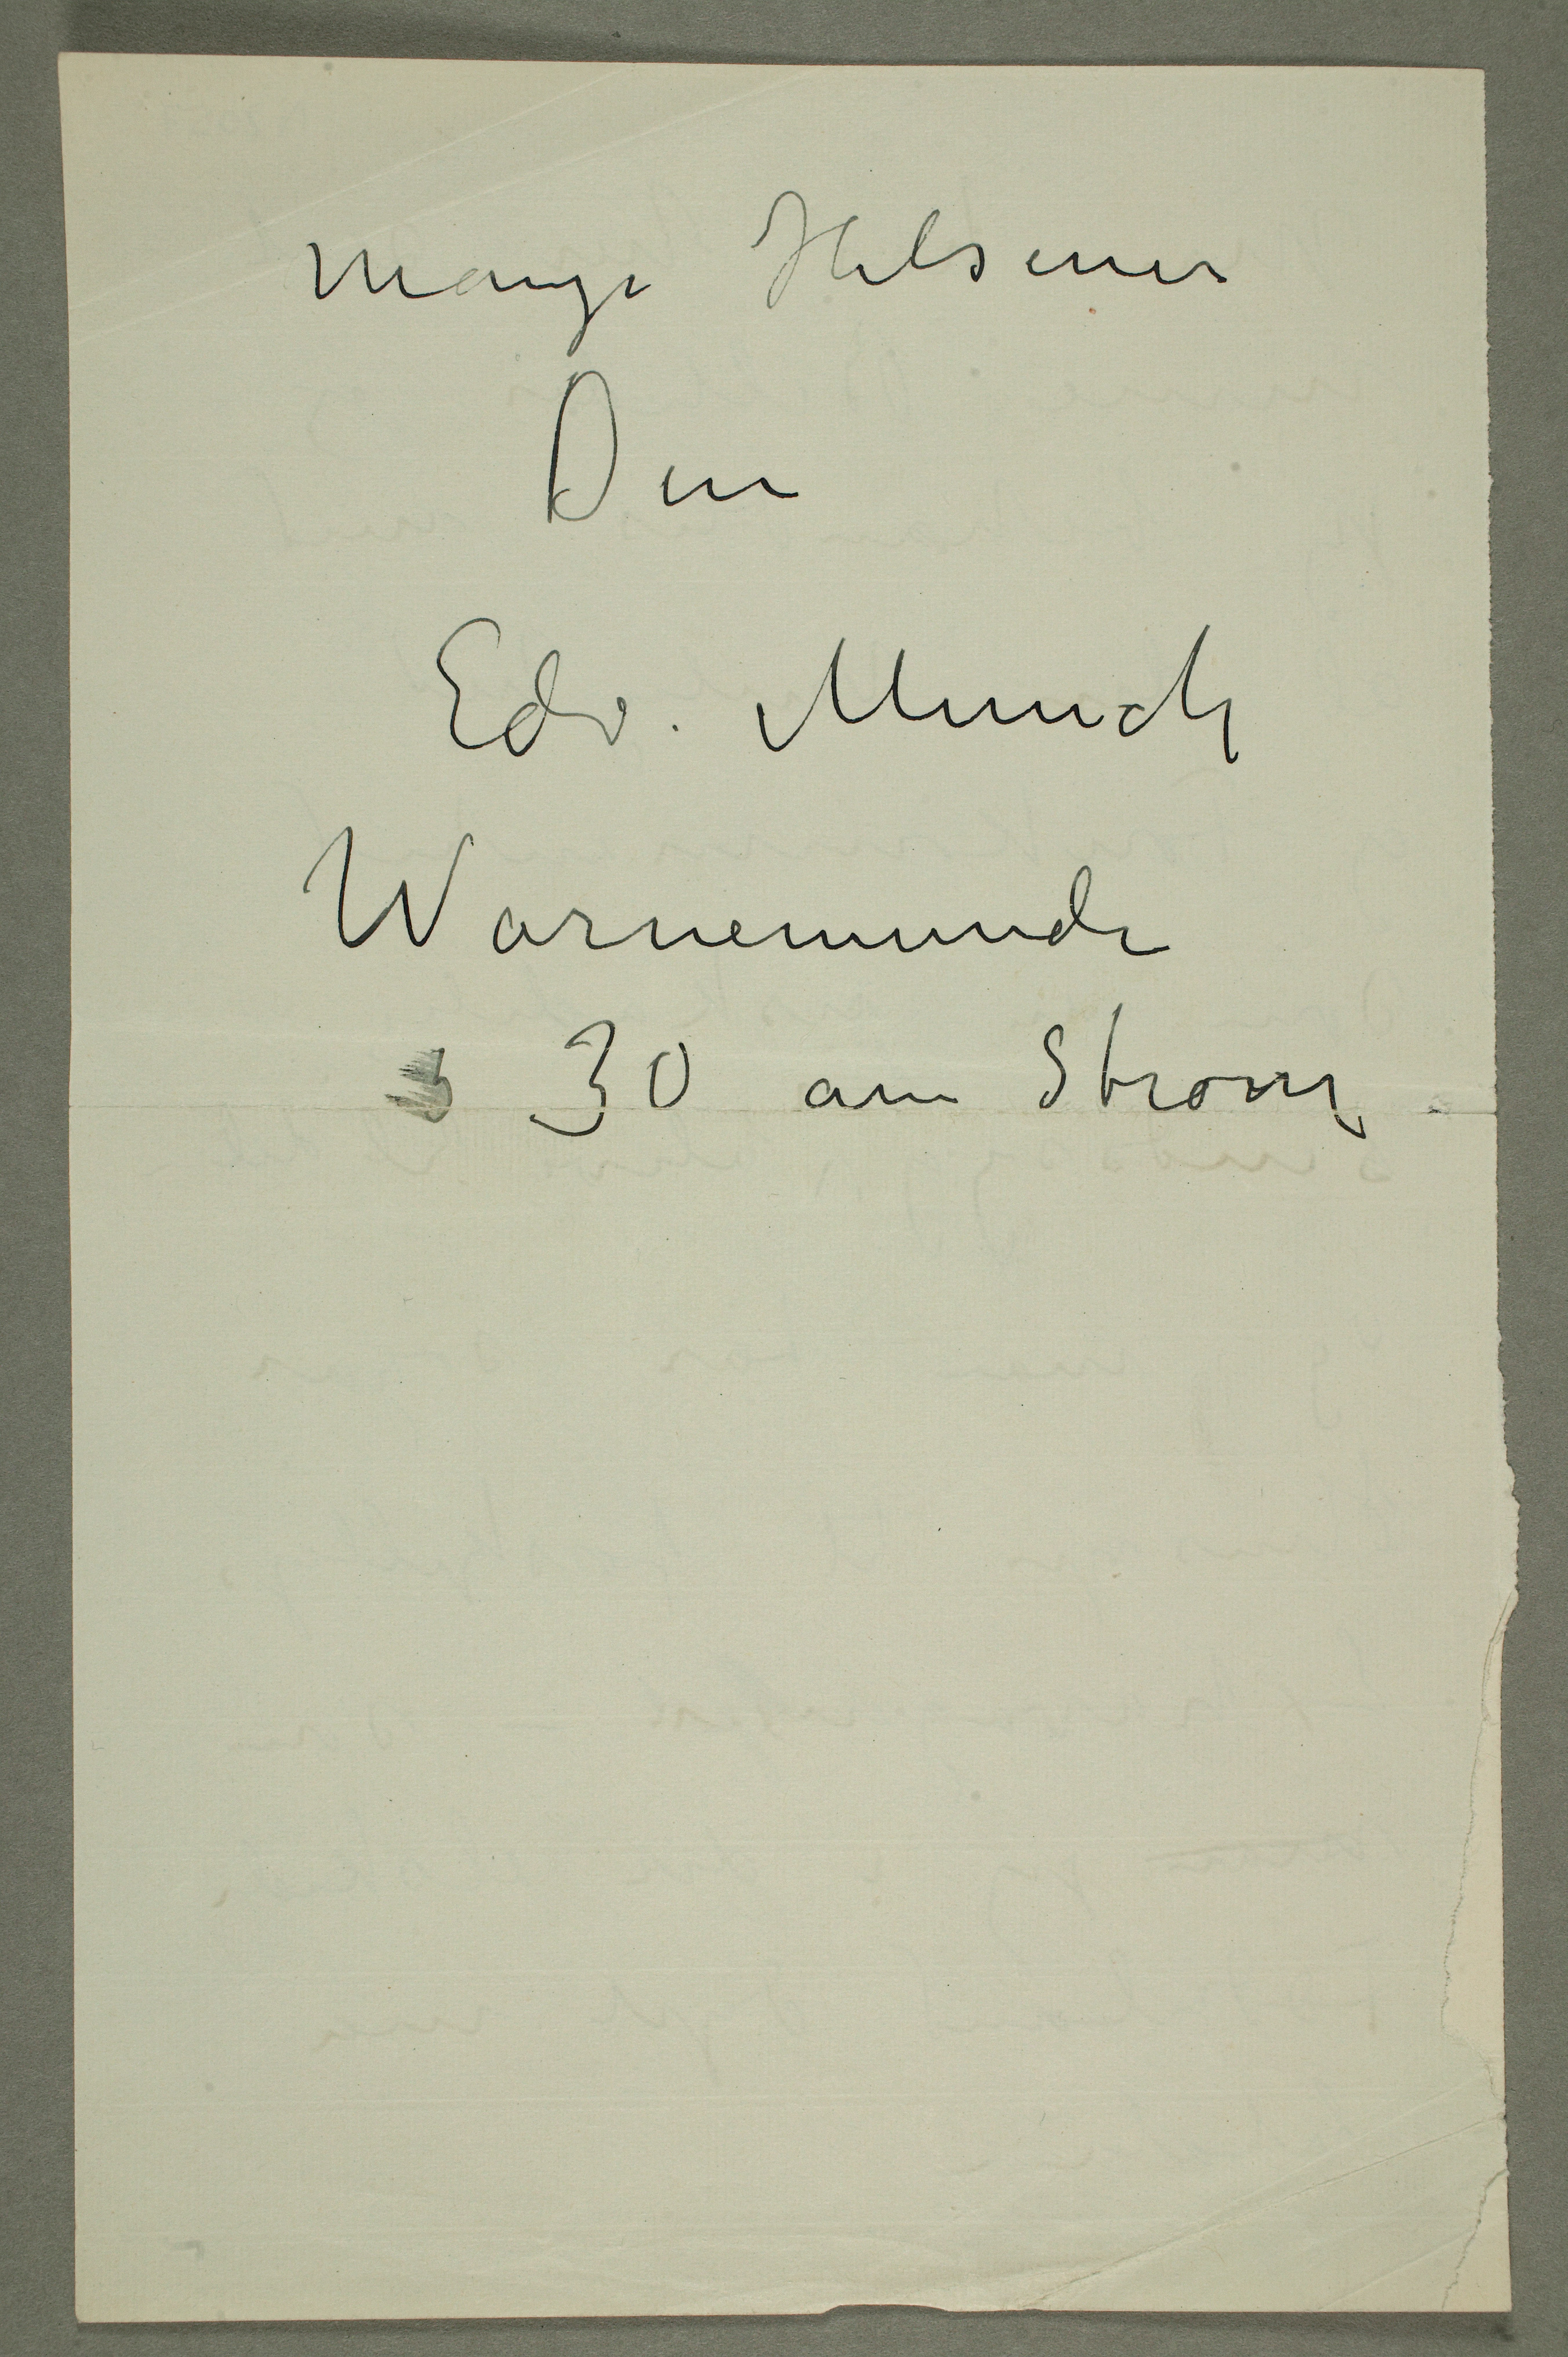 Mange Hilsener
Din
Edv. Munch
Warnemunde
30 am Strom